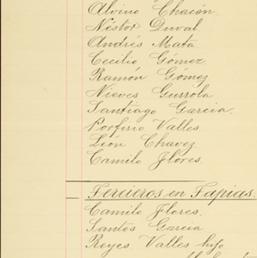 Alvino Chacón
Néstor Duval
Andrés Mata
Cecilio Gómez
Ramón Gómez
Nieves Gurrola
Santiago Garcia.
Porfirio Valles
León Chavez
Camilo Flores.
Terceros en Tapias.
Camilo Flores.
Santos Garcia
Reyes Valles hijo